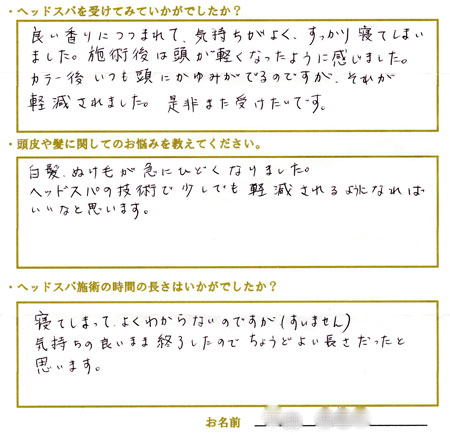 ・ヘッドスパを受けてみていかがでしたか？
良い香りにつつまれて、気持ちがよく、すっかり寝てしまい
ました。施術後は頭が軽くなったように感じました。
カラー後いつも頭にかゆみがでるのですが、それが
軽減されました。是非また受けたいです。
・頭皮や髪に関してのお悩みを教えてください。
白髪、ぬけ毛が急にひどくなりました。
ヘッドスパの技術で少しでも軽減されるようになれば
いいなと思います。
・ヘッドスパ施術の時間の長さはいかがでしたか？
寝てしまって、よくわからないのですが(すいません)
気持ちの良いまま終了したのでちょうどよい長さだったと
思います。
お名前